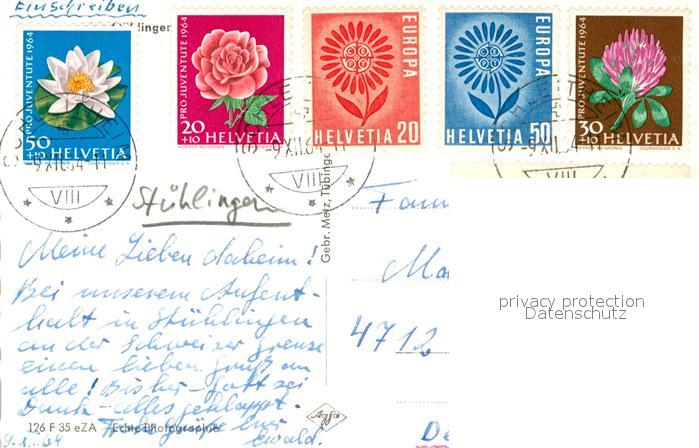 Einschreiben
PRO JUVENTUTE 1964
50
+10 HELVETIA
PRO JUVENTUTE 1964
20
+10 HELVETIA
EUROPA
HELVETIA 20
EUROPA
HELVETIA 50
PRO JUVENTUTE 1964
30
+10 HELVETIA
COURVOISIER S.A.
-9.XII.64-11
VIII
-9.XII.64-11
VIII
-9.XII.64
VIII
Stühlingen
Gebr. Metz, Tübingen
Meine Lieben daheim!
Bei unserem Aufent-
halt in Stühlingen
an der Schweizer Grenze
einen lieben Gruß an
alle! Bisher - Gott sei
Dank - alles geklappt.
Ewald.
126 F 35 eZA Echte Photographie
Agfa
Fam
Ma
4712
De
privacy protection
Datenschutz